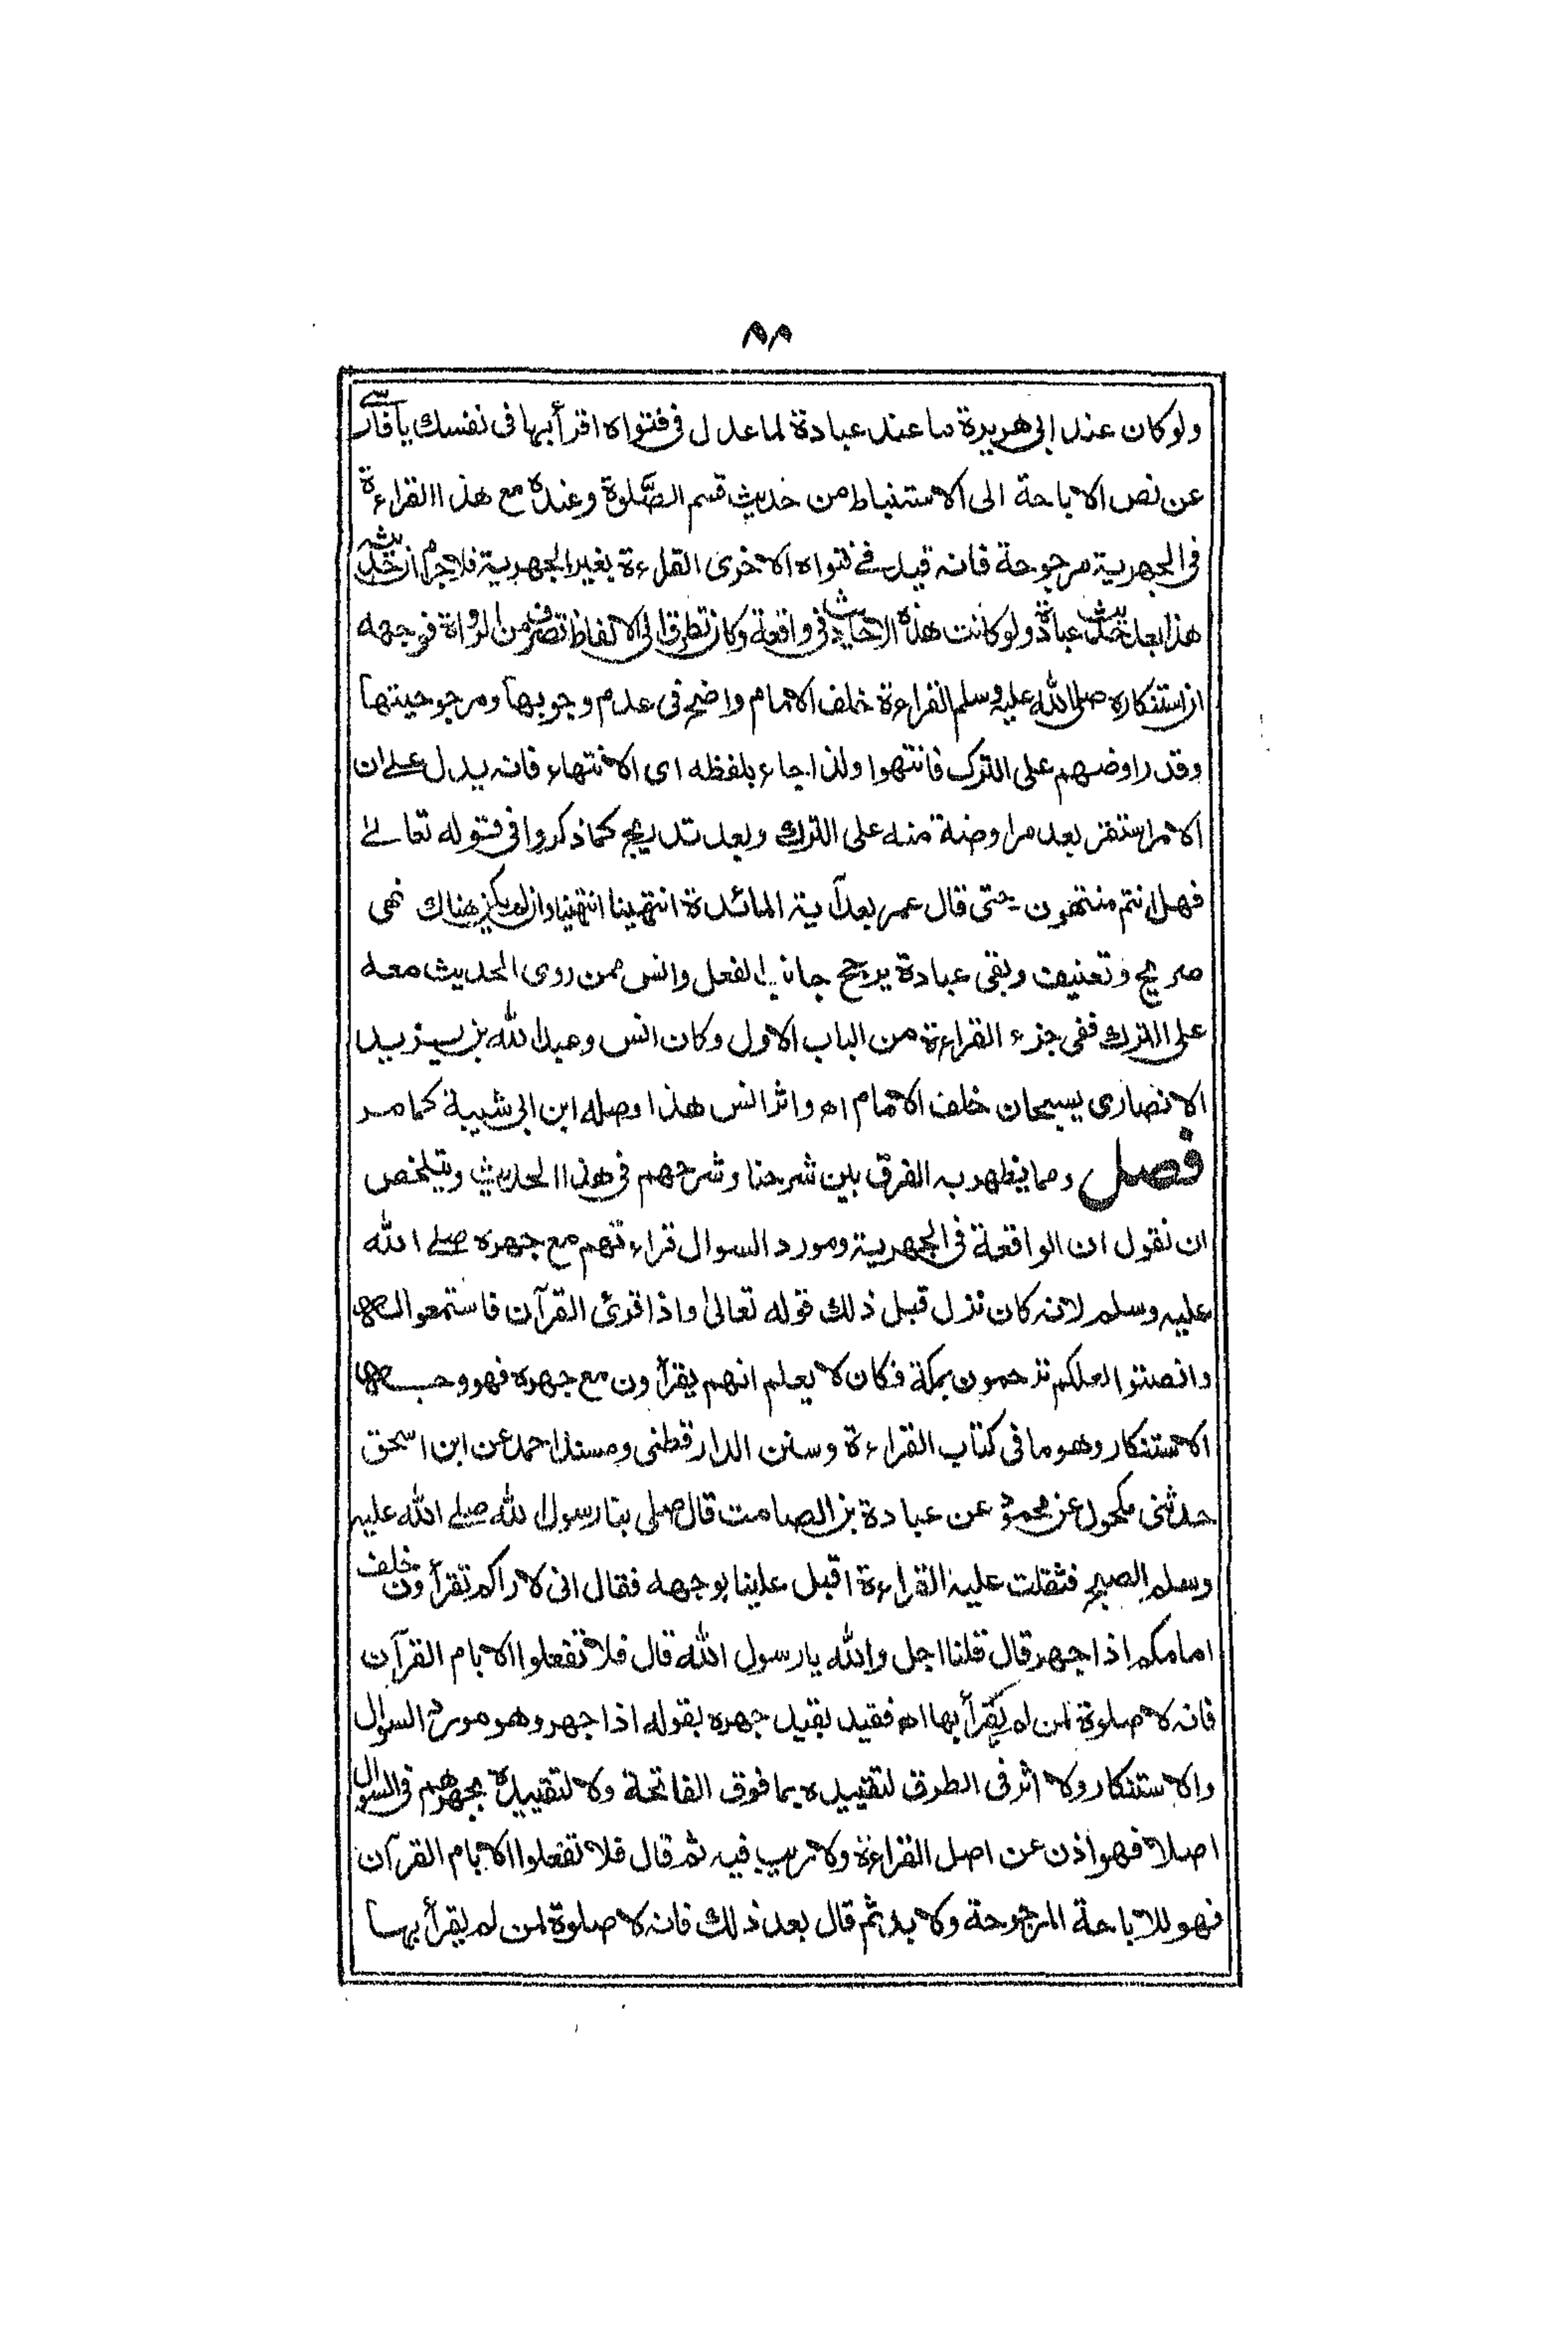 ٨٨
ولو كان عند ابى هريرة ما عند عبادة لما عدل فى فتواه اقرأ بها فى نفسك يا فارسى
عن نص الاباحة الى الاستنباط من حديث قسم الصلوة وعنده مع هذا القراءة
فى الجهرية مرجوحة فانه قيد فى فتواه الاخرى القراءة بغير الجهرية فلا جرم ان حديثه
هذا بعد حديث عبادة ولو كانت هذه الاحاديث فى واقعة وكان تطرق الى الالفاظ تصرف من الرواة فوجهه
ان استنكاره صلى الله عليه وسلم القراءة خلف الامام واضح فى عدم وجوبها ومرجوحيتها
وقد راوضهم على الترك فانتهوا ولذا جاء بلفظه اى الانتهاء فانه يدل على ان
الامر استقر بعد مراوضة منه على الترك وبعد تدريج كما ذكروا فى قوله تعالى
فهل انتم منتهون حتى قال عمر بعد آية المائدة انتهينا انتهينا وان لم يكن هناك نهى
صريح وتعنيف وبقى عبادة يرجح جانب الفعل وانس ممن روى الحديث معه
على الترك ففى جزء القراءة من الباب الاول وكان انس وعبد الله بن يزيد
الانصارى يسبحان خلف الامام اه واثر انس هذا وصله ابن ابى شيبة كما مر
فصل ومما يظهر به الفرق بين شرحنا وشرحهم فى هذا الحديث ويتلخص
ان نقول ان الواقعة فى الجهرية ومورد السوال قراءتهم مع جهره صلى الله
عليه وسلم لانه كان نزل قبل ذلك قوله تعالى واذا قرئ القرآن فاستمعوا له
وانصتوا لعلكم ترحمون بمكة فكان لا يعلم انهم يقرأون مع جهره فهو وجه
الاستنكار وهو ما فى كتاب القراءة وسنن الدارقطنى ومسند احمد عن ابن اسحق
حدثنى مكحول عن محمود عن عبادة بن الصامت قال صلى بنا رسول الله صلى الله عليه
وسلم الصبح فثقلت عليه القراءة اقبل علينا بوجهه فقال انى لاراكم تقرأون خلف
امامكم اذا جهر قال قلنا اجل والله يا رسول الله قال فلا تفعلوا الا بام القرآن
فانه لا صلوة لمن لم يقرأ بها اه فقيد بقيد جهره بقوله اذا جهر وهو مورد السوال
والاستنكار ولا اثر فى الطرق لتقييده بما فوق الفاتحة ولا لتقييده بجهرهم فى السوال
اصلا فهو اذن عن اصل القراءة ولا ريب فيه ثم قال فلا تفعلوا الا بام القرآن
فهو للاباحة المرجوحة ولا بد ثم قال بعد ذلك فانه لا صلوة لمن لم يقرأ بها